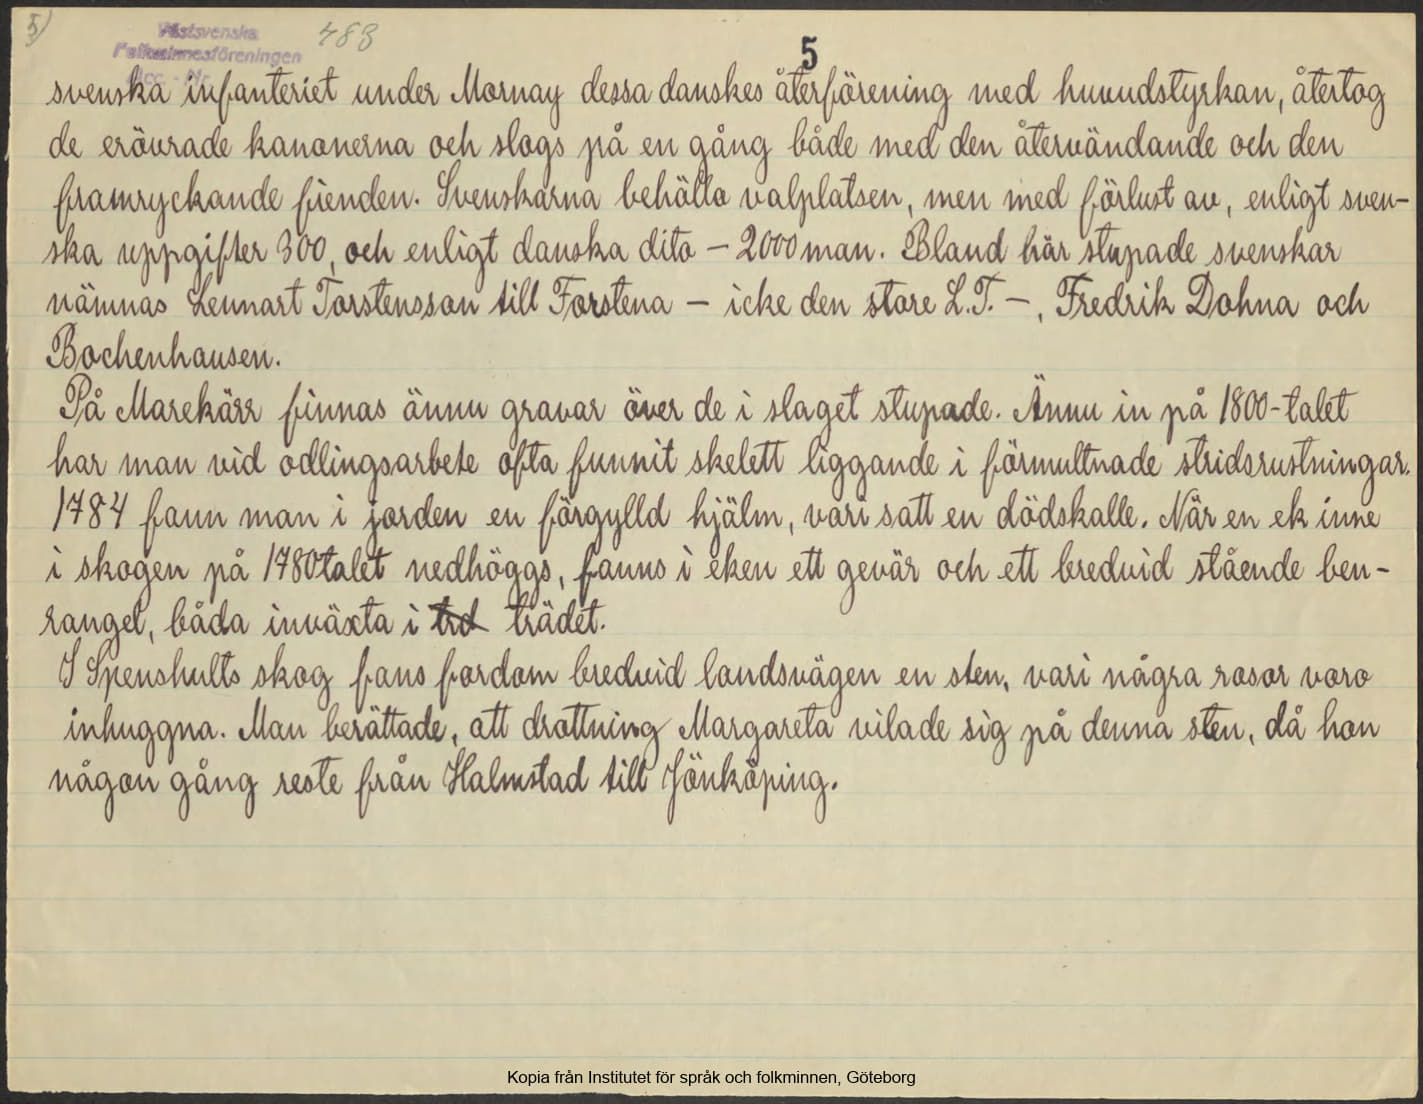 5)
Västsvenska 483
Folkminnesföreningen
Acc. - Nr.
5
svenska infanteriet under Mornay dessa danskes återförening med huvudstyrkan, återtog
de erövrade kanonerna och slogs på en gång både med den återvändande och den
framryckande fienden. Svenskarna behålla valplatsen, men med förlust av, enligt sven-
ska uppgifter 300, och enligt danska dito – 2000 man. Bland här stupade svenskar
nämnas Lennart Torstensson till Forstena – icke den store L.T. –, Fredrik Dohna och
Bochenhausen.
På Marekärr finnas ännu gravar över de i slaget stupade. Ännu in på 1800-talet
har man vid odlingsarbete ofta funnit skelett liggande i förmultnade stridsrustningar.
1784 fann man i jorden en förgylld hjälm, vari satt en dödskalle. När en ek inne
i skogen på 1780talet nedhöggs, fanns i eken ett gevär och ett bredvid stående ben-
rangel, båda inväxta i trd trädet.
I Spenshults skog fans fordom bredvid landsvägen en sten, vari några rosor voro
inhuggna. Man berättade, att drottning Margareta vilade sig på denna sten, då hon
någon gång reste från Halmstad till Jönköping.
Kopia från Institutet för språk och folkminnen, Göteborg